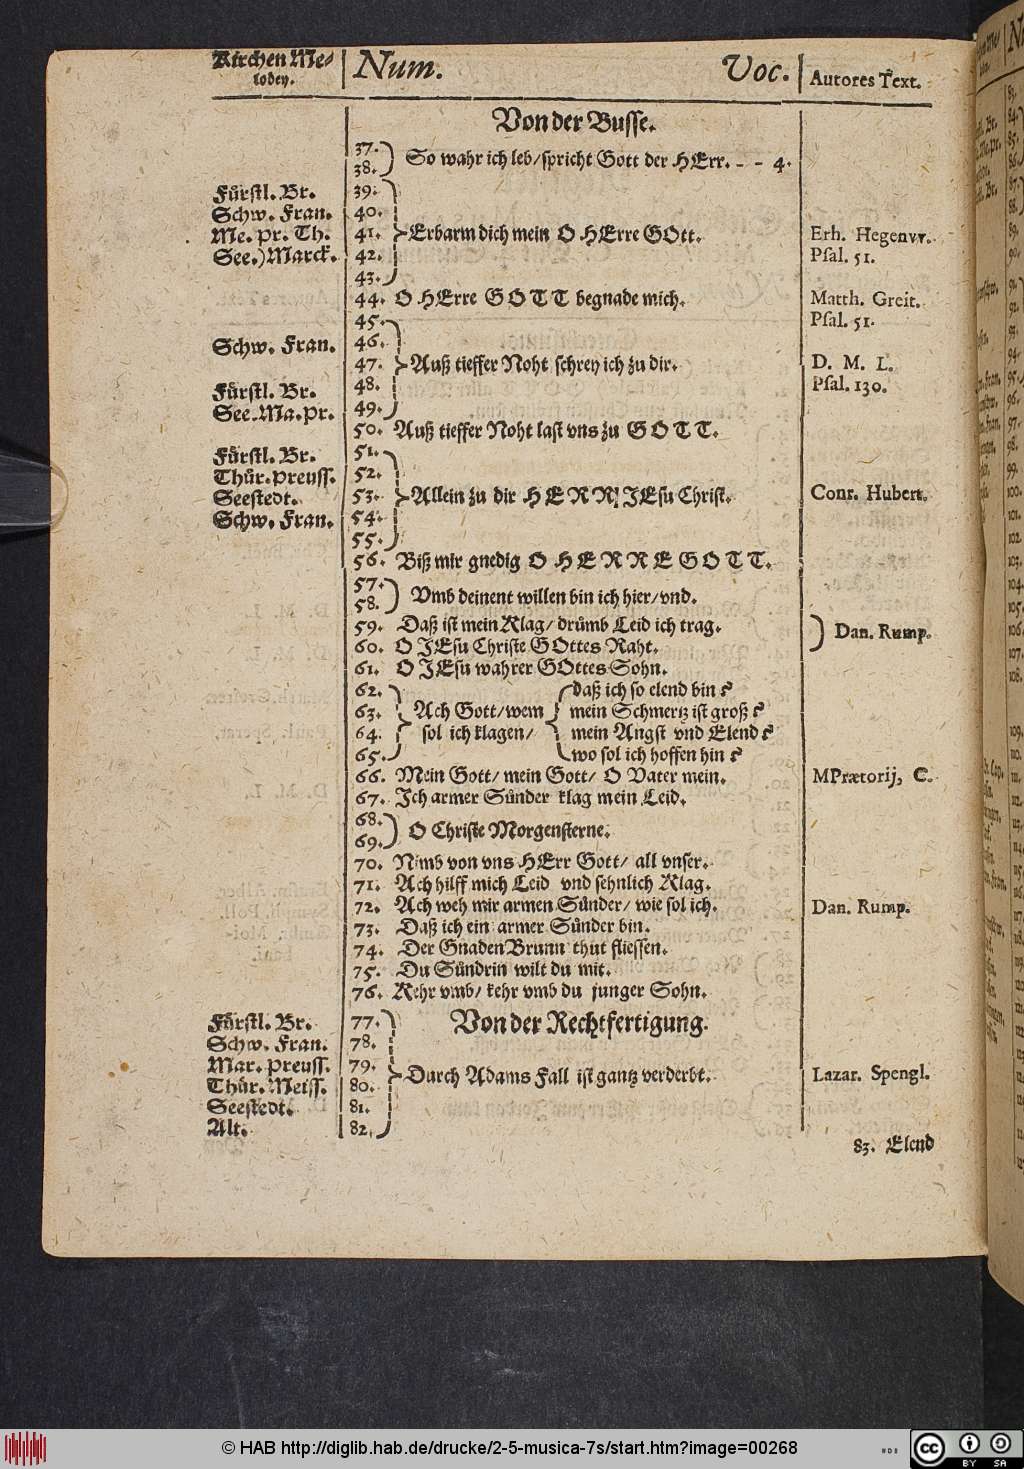 Kirchen Me-
lodey.
Num.
Voc.
Autores Text.
Von der Busse.
37.
38. So wahr ich leb/spricht Gott der HErr. - - 4.
Fürstl. Br. 39.
Schw. Fran. 40.
Me. pr. Th. 41. Erbarm dich mein O HErre GOtt. Erh. Hegenvv.
See.) Marck. 42. Psal. 51.
43.
44. O HErre GOTT begnade mich. Matth. Greit.
45. Psal. 51.
Schw. Fran. 46.
47. Auß tieffer Noht schrey ich zu dir. D. M. L.
Fürstl. Br. 48. Psal. 130.
See. Ma. pr. 49.
50. Auß tieffer Noht last vns zu GOTT.
Fürstl. Br. 51.
Thür. preuss. 52.
Seestedt. 53. Allein zu dir HERR JEsu Christ. Conr. Hubert.
Schw. Fran. 54.
55.
56. Biß mir gnedig O HERRE GOTT.
57.
58. Vmb deinent willen bin ich hier/vnd.
59. Daß ist mein Klag/ drümb Leid ich trag.
60. O JEsu Christe GOttes Raht. Dan. Rump.
61. O JEsu wahrer GOttes Sohn.
62. daß ich so elend bin ?
63. Ach Gott/wem mein Schmertz ist groß ?
64. sol ich klagen/ mein Angst vnd Elend ?
65. wo sol ich hoffen hin ?
66. Mein Gott/ mein Gott/ O Vater mein. MPrætorij, C.
67. Ich armer Sünder klag mein Leid.
68.
69. O Christe Morgensterne.
70. Nimb von vns HErr Gott/ all vnser.
71. Ach hilff mich Leid vnd sehnlich Klag.
72. Ach weh mir armen Sünder/ wie sol ich. Dan. Rump.
73. Daß ich ein armer Sünder bin.
74. Der GnadenBrunn thut fliessen.
75. Du Sündrin wilt du mit.
76. Kehr vmb/ kehr vmb du junger Sohn.
Fürstl. Br. 77. Von der Rechtfertigung.
Schw. Fran. 78.
Mar. preuss. 79.
Thür. Meiss. 80. Durch Adams Fall ist gantz verderbt. Lazar. Spengl.
Seestedt. 81.
Alt. 82.
83. Elend
© HAB http://diglib.hab.de/drucke/2-5-musica-7s/start.htm?image=00268
cc BY SA